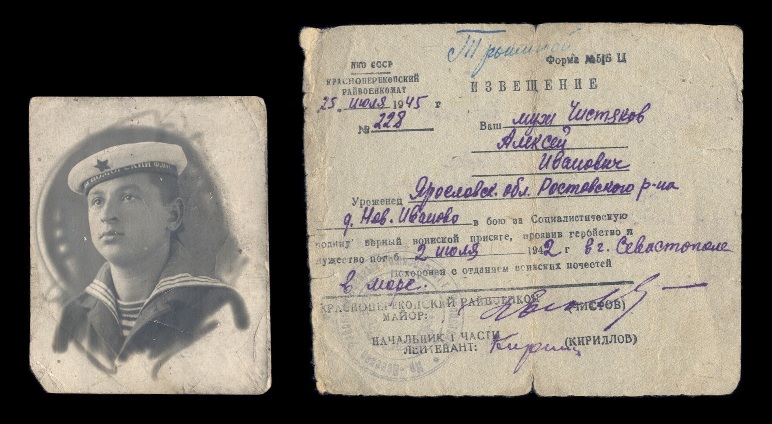 НКО СССР
КРАСНОПЕРЕКОПСКИЙ
РАЙВОЕНКОМАТ
25 июля 1945 г
№ 228
Форма №
ИЗВЕЩЕНИЕ
Ваш муж Чистяков
Алексей
Иванович
Уроженец Ярославск. обл. Ростовского р-на
д. Нов. Иваново в бою за Социалистическую
родину верный воинской присяге, проявив геройство и
мужество погиб 2 июля 1942 г в г. Севастополе
Похоронен с отданием воинских почестей
в море.
КРАСНОПЕРЕКОПСКИЙ РАЙВОЕНКОМ
МАЙОР: (ЛИСТОВ)
НАЧАЛЬНИК 1 ЧАСТИ
ЛЕЙТЕНАНТ: (КИРИЛЛОВ)